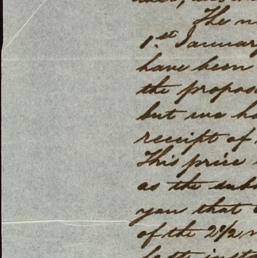 The n
1.st January
have been
the propos
but we ha
receipt of
This price
as the sub
you that
of the 2½ m